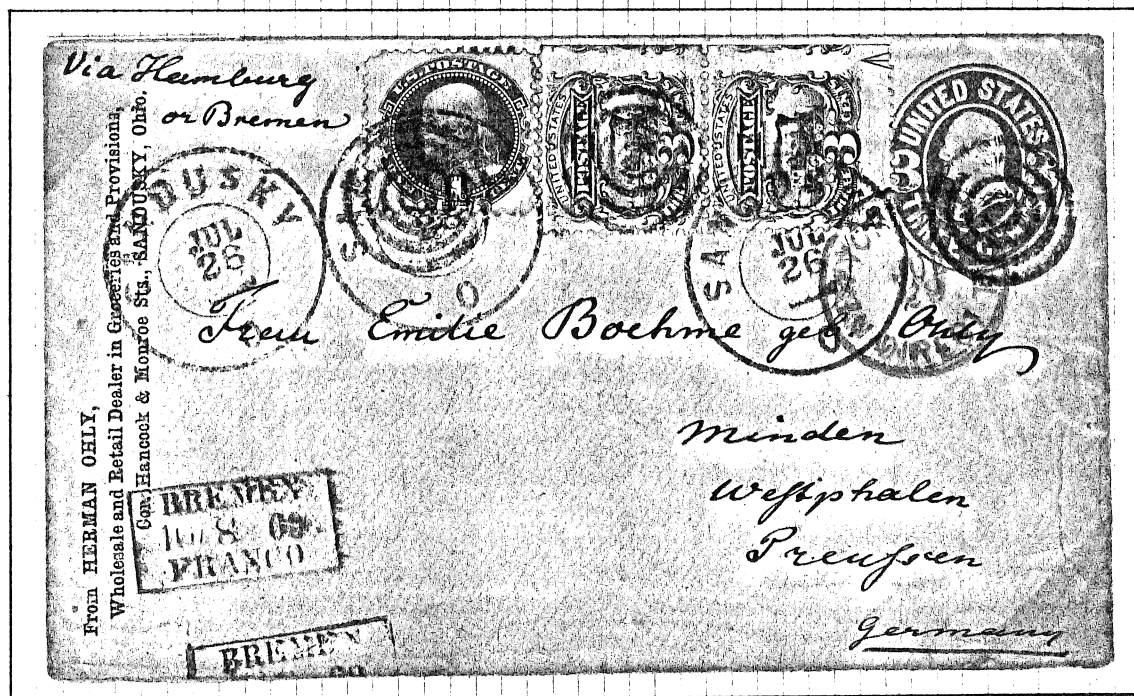 Via Hamburg
or Bremen
From HERMAN OHLY,
Wholesale and Retail Dealer in Groceries and Provisions,
Cor. Hancock & Monroe Sts., SANDUSKY, Ohio.
U.S. POSTAGE
UNITED STATES
POSTAGE
3
UNITED STATES
POSTAGE
3
UNITED STATES
3
DUSKY
JUL
26
S
O
SA
JUL
26
O
Frau Emilie Boehme geb Ohly
Minden
Westphalen
Preußen
Germany
BREMEN
8 69
FRANCO
BREMEN